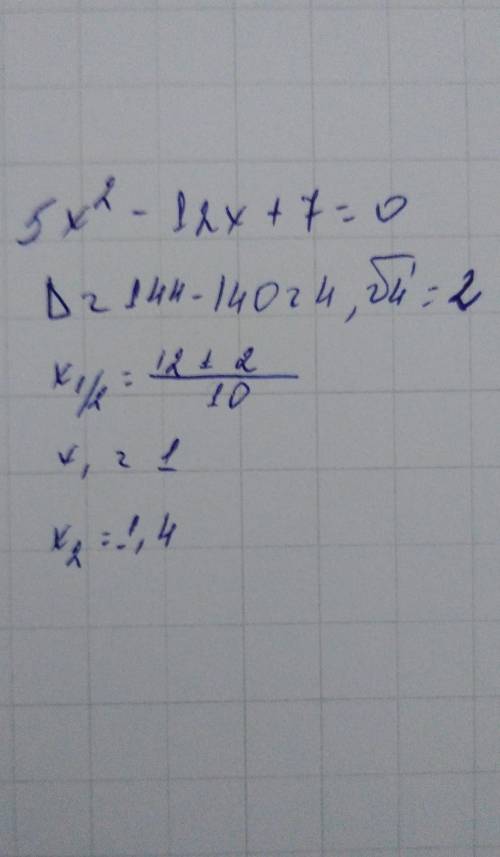 5x² - 12x + 7 = 0
D = 144 - 140 = 4, √4 = 2
x₁/₂ = (12 ± 2)/10
x₁ = 1
x₂ = 1,4